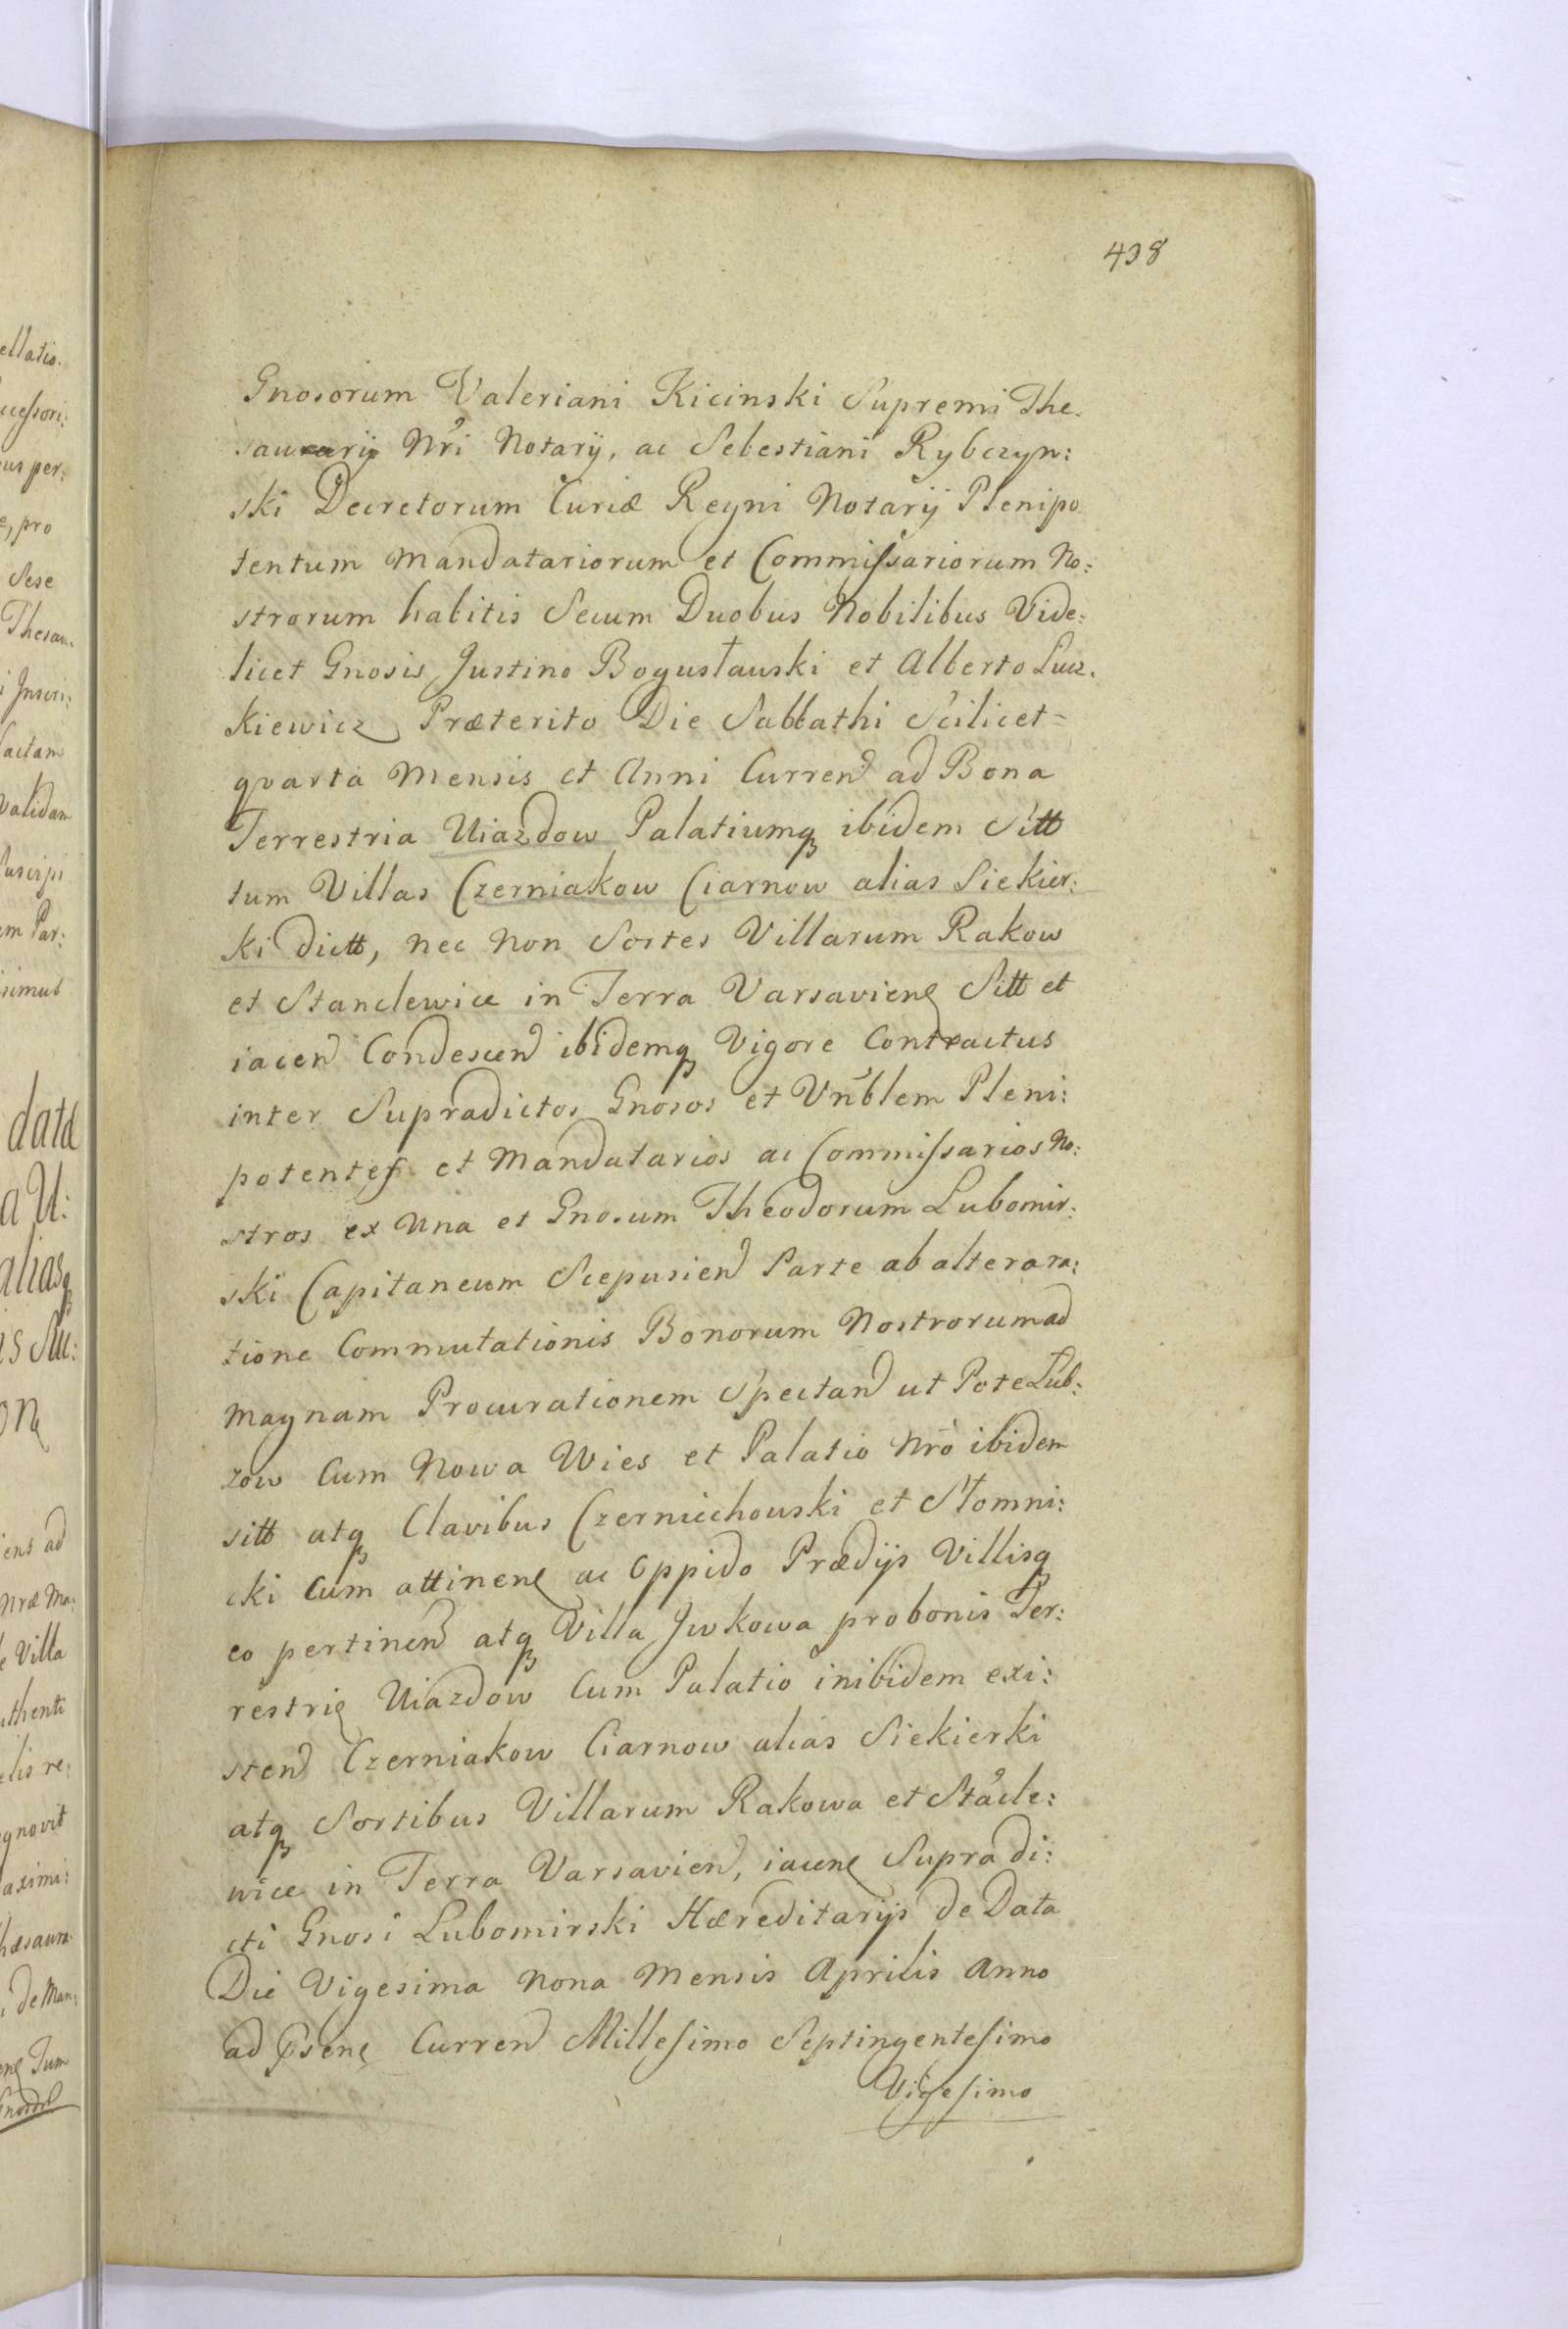 438
Gnosorum Valeriani Kicinski Supremi The-
saurarij Nri Notarij, ac Sebestiani Rybczyn:
ski Decretorum Curiæ Regni Notarij Plenipo
tentum Mandatariorum et Commissariorum No:
strorum habitis Secum Duobus Nobilibus Vide:
licet Gnosis Justino Bogusławski et Alberto Lucz.
kiewicz Præterito Die Sabbathi Scilicet=
qvarta Mensis et Anni Curren ad Bona
Terrestria Uiazdow Palatiumq ibidem Sitt
tum Villas Czerniakow Ciarnow alias Siekier:
ki dictt, nec non Sortes Villarum Rakow
et Stanclewice in Terra Varsaviene Sitt et
iacen Condescen ibidemq Vigore Contractus
inter Supradictos Gnosos et Vnblem Pleni:
potentes et Mandatarios ac Commissarios No:
stros ex Una et Gnosum Theodorum Lubomir:
ski Capitaneum Scepusien Parte ab altera ra:
tione Commutationis Bonorum Nostrorum ad
Magnam Procurationem Spectan ut Pote Łub:
zow Cum Nowa Wies et Palatio Nro ibidem
sitt atq Clavibus Czerniechouski et Słomni:
cki Cum attinene ac Oppido Prædijs Villisq
eo pertinen atq Villa Jwkowa pro bonis Ter:
restrie Uiazdow Cum Palatio inibidem exi:
sten Czerniakow Ciarnow alias Siekierki
atq Sortibus Villarum Rakowa et Stacle:
wice in Terra Varsavien, iacene Supra di:
cti Gnosi Lubomirski Hæreditarijs de Data
Die Vigesima Nona Mensis Aprilis Anno
ad Psene Curren Millesimo Septingentesimo
Vigesimo